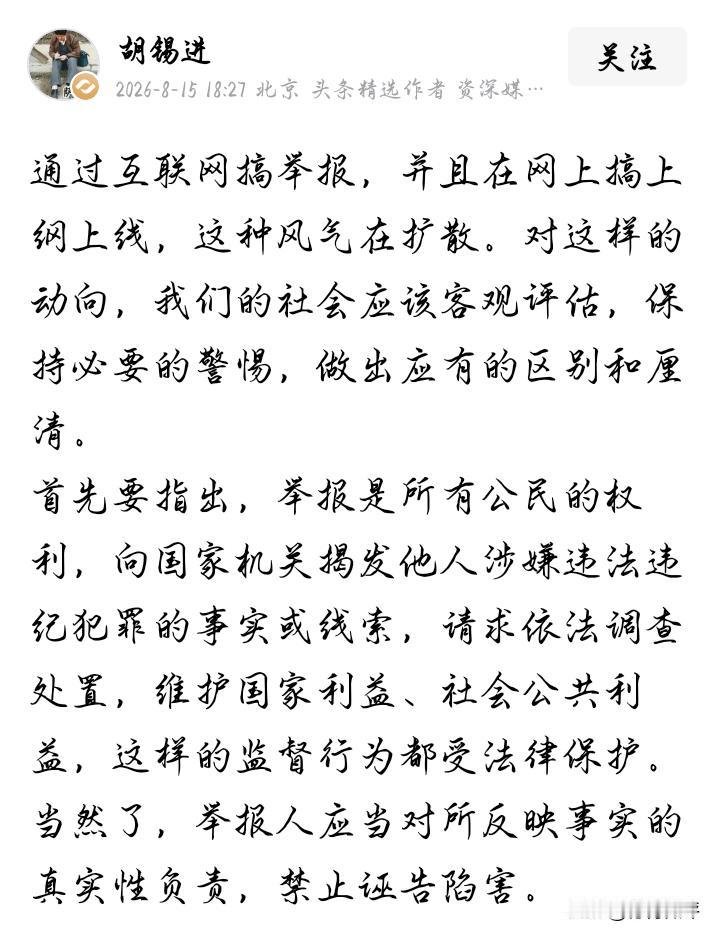 胡锡进
关注
2026-8-15 18:27 北京 头条精选作者 资深媒…
通过互联网搞举报，并且在网上搞上
纲上线，这种风气在扩散。对这样的
动向，我们的社会应该客观评估，保
持必要的警惕，做出应有的区别和厘
清。
首先要指出，举报是所有公民的权
利，向国家机关揭发他人涉嫌违法违
纪犯罪的事实或线索，请求依法调查
处置，维护国家利益、社会公共利
益，这样的监督行为都受法律保护。
当然了，举报人应当对所反映事实的
真实性负责，禁止诬告陷害。